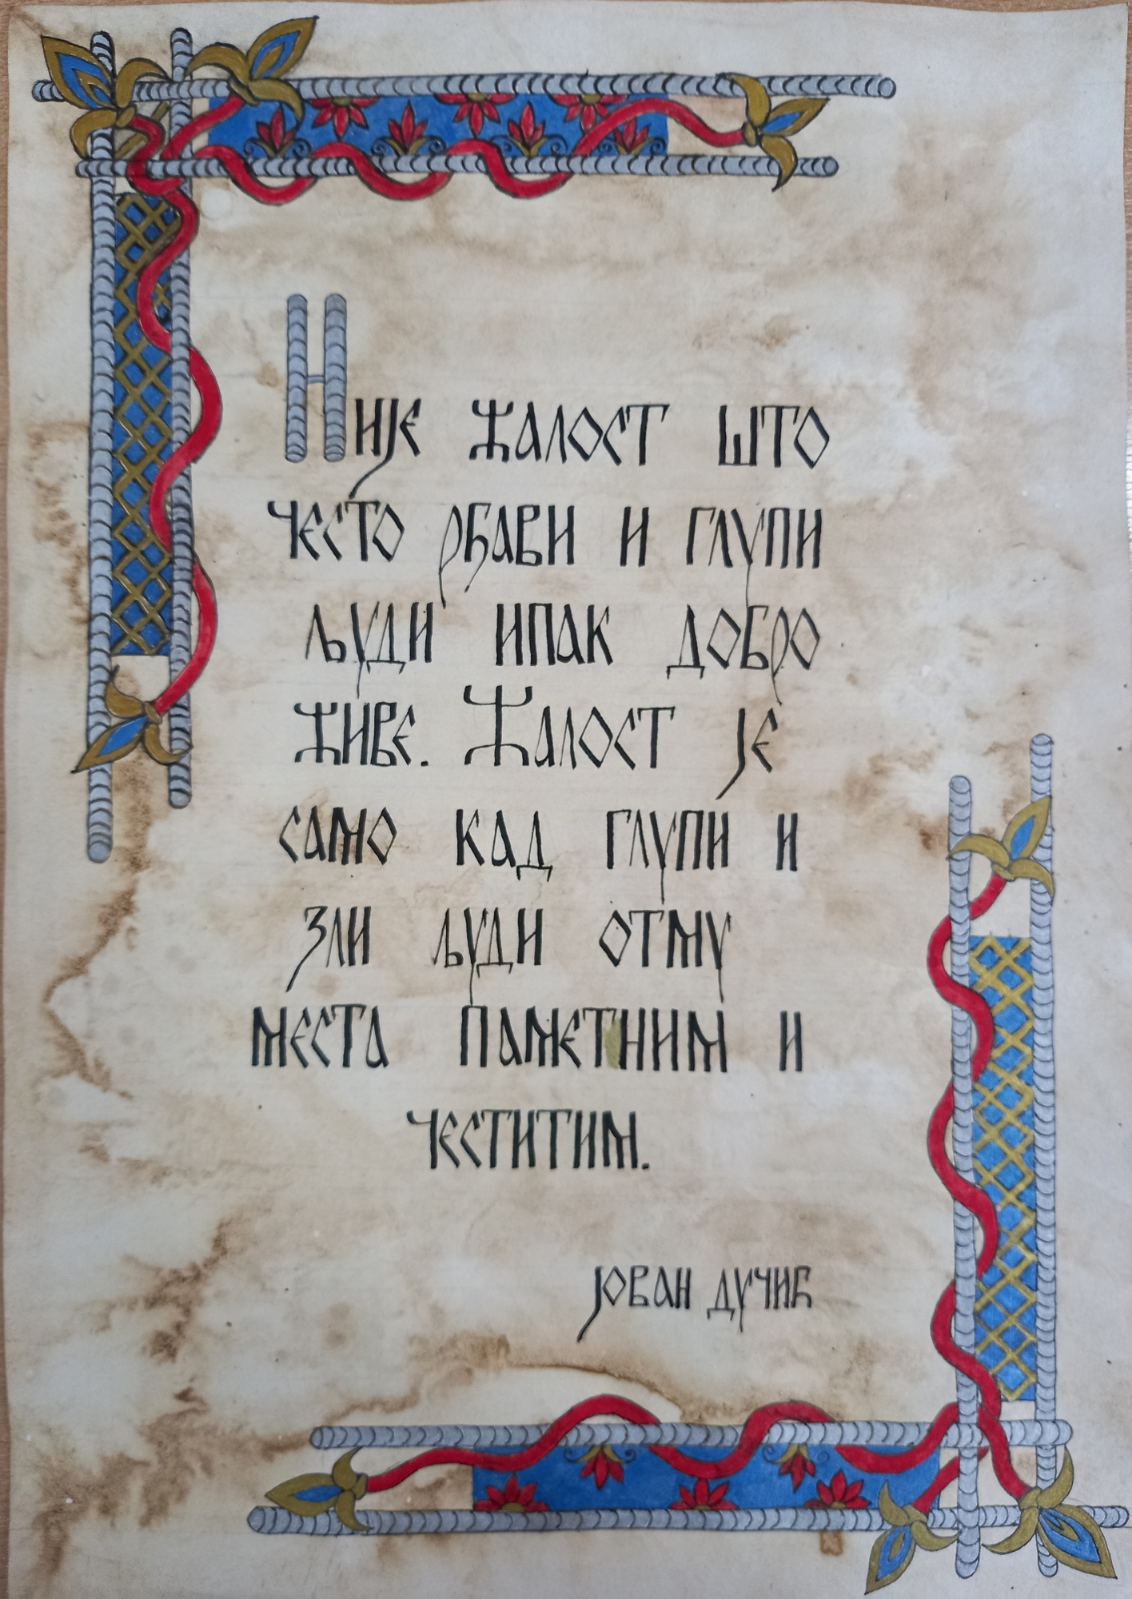 Није жалост што
често рђави и глупи
људи ипак добро
живе. Жалост је
само кад глупи и
зли људи отму
места паметним и
честитим.
Јован Дучић